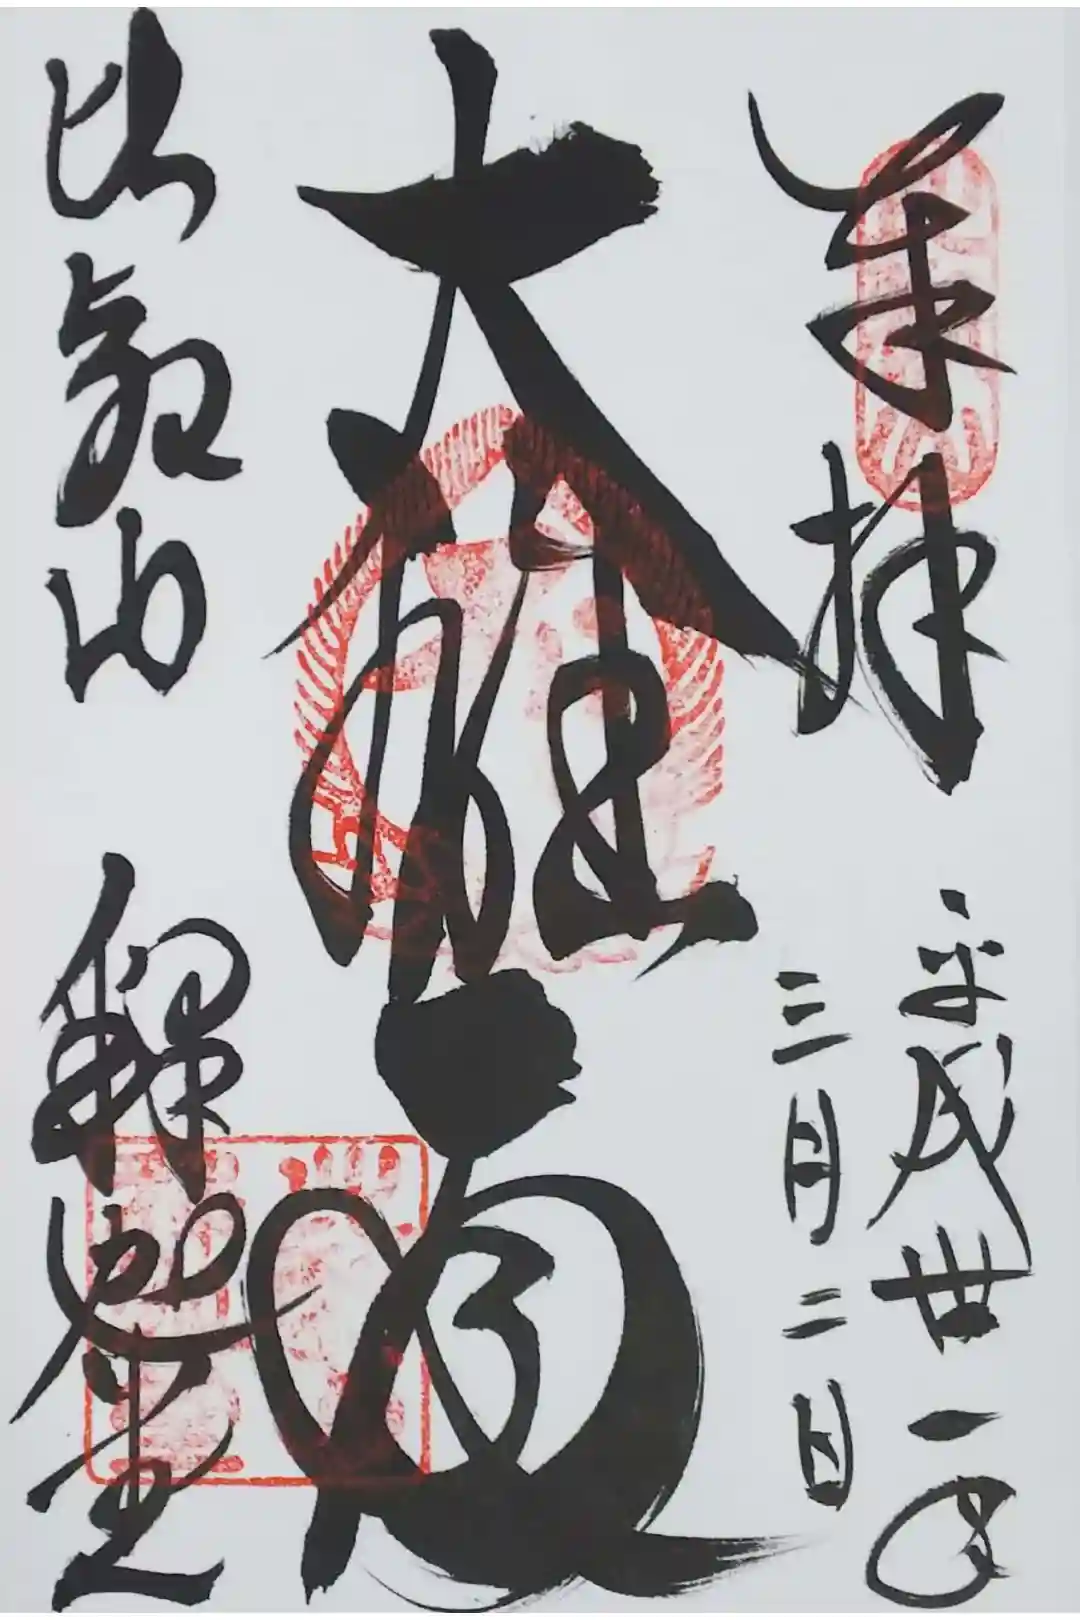 奉拝
平成卅一年
三月二日
大雄殿
比叡山
釋迦堂